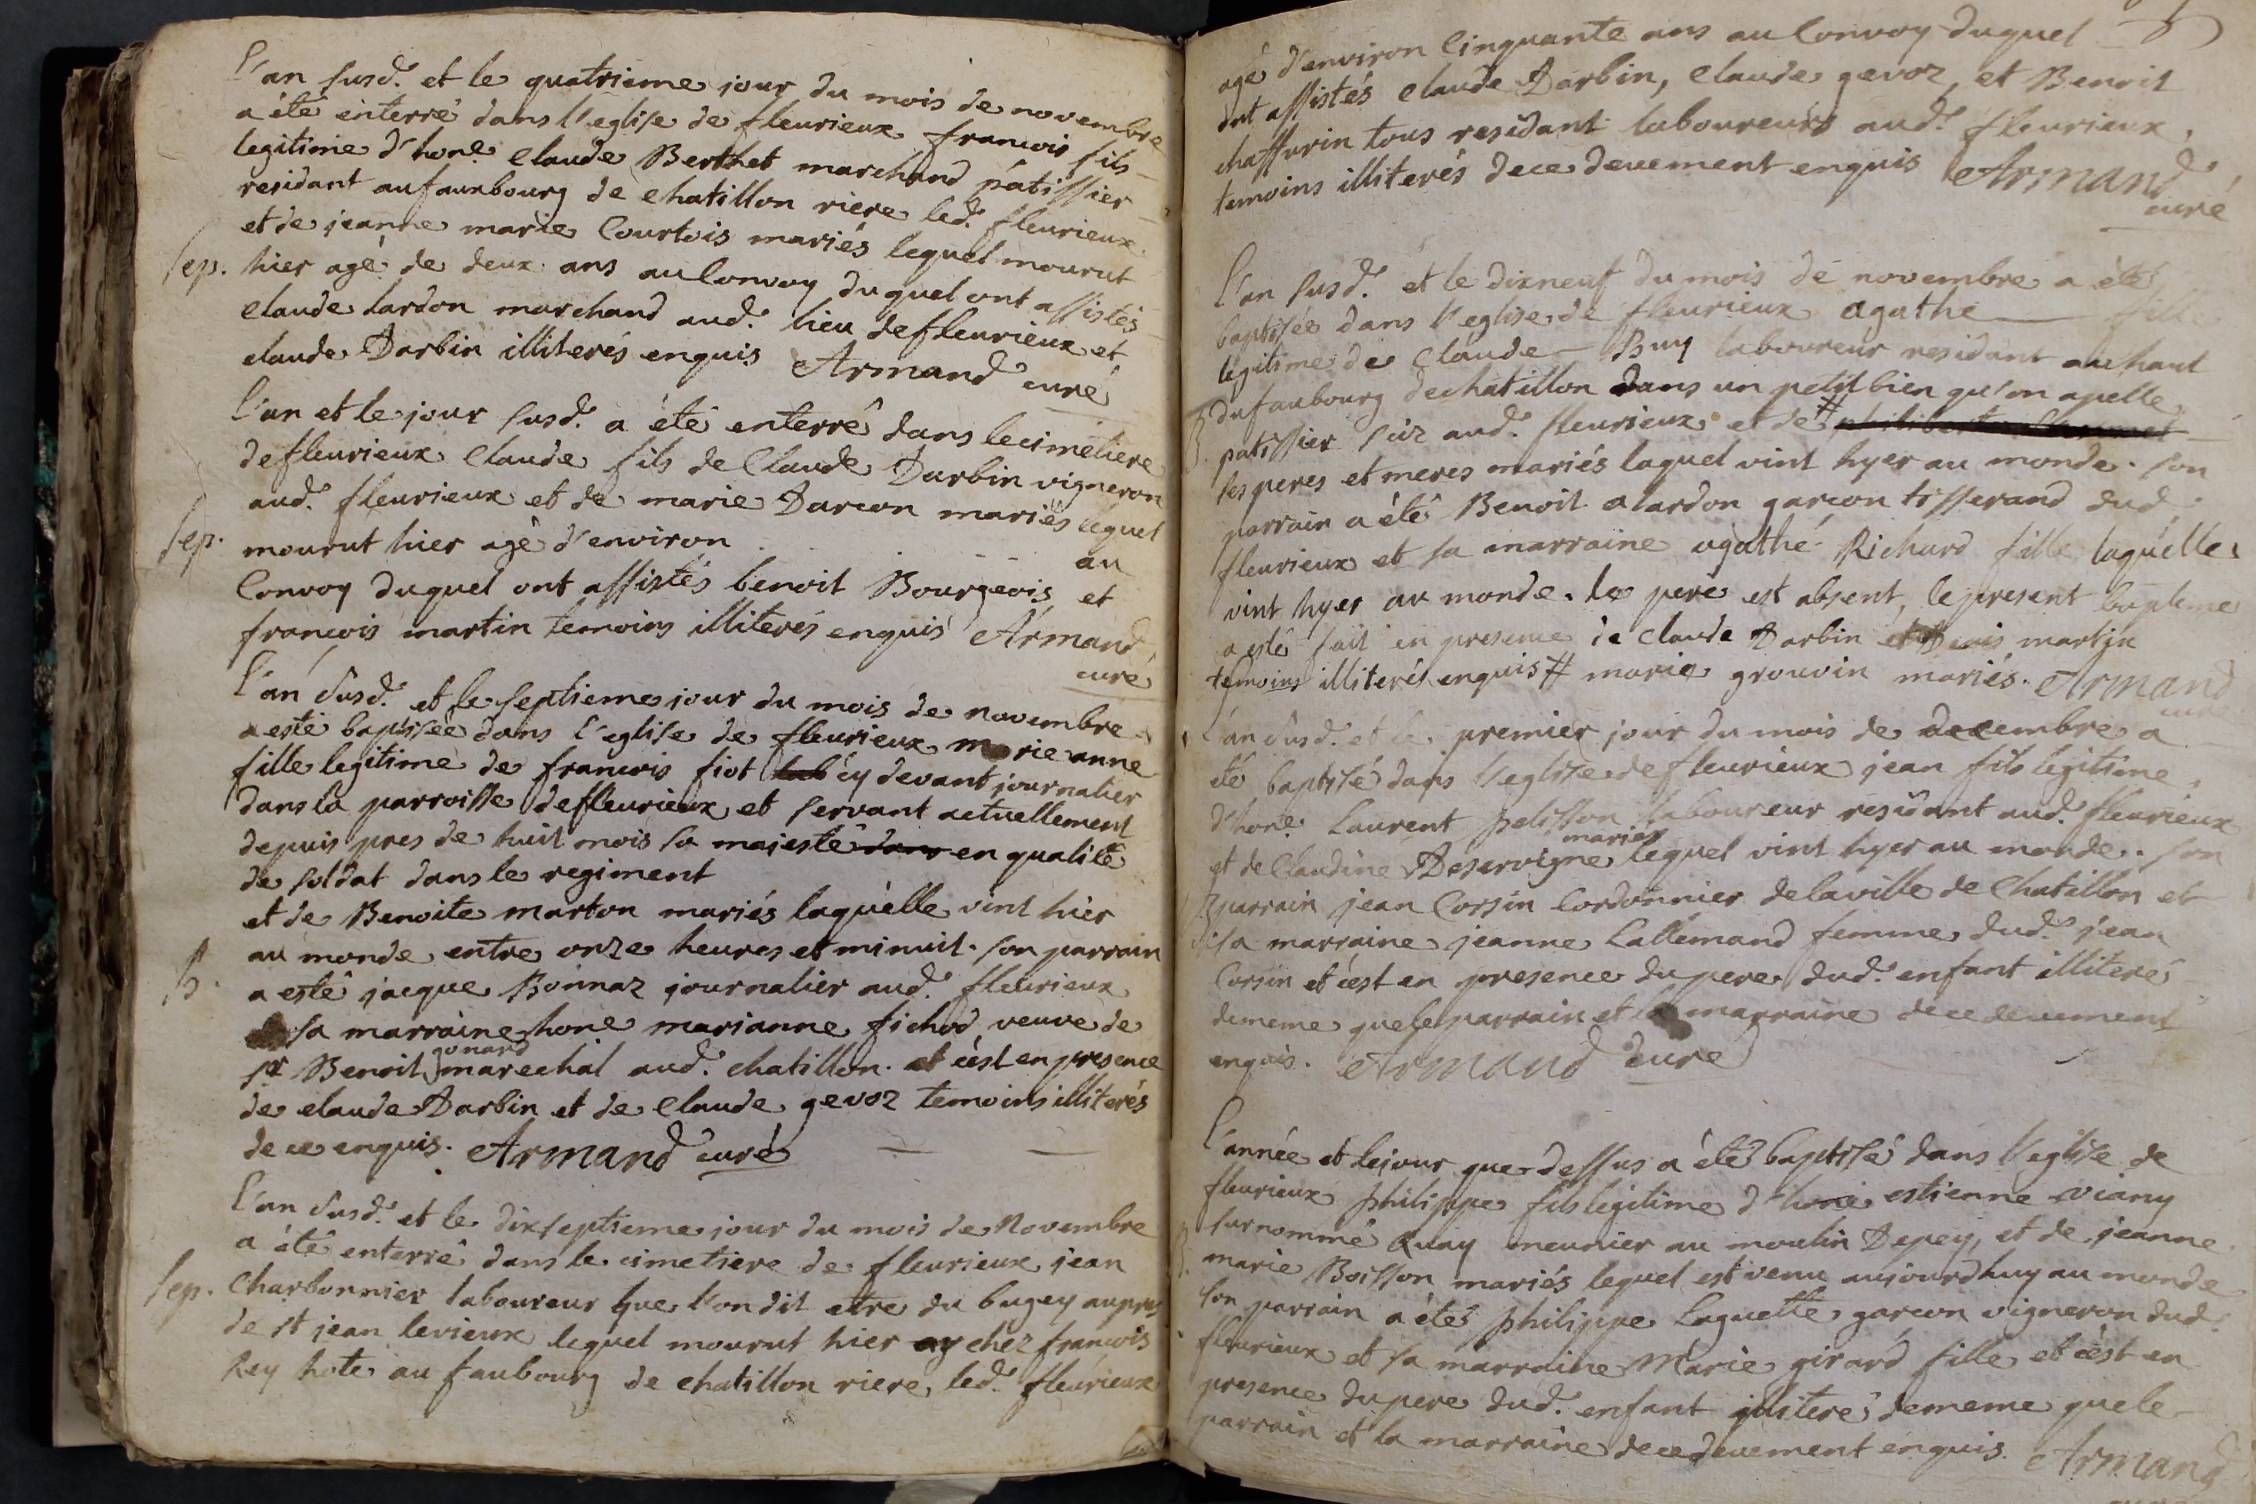 l'an susd. et le quatrieme jour du mois de novembre
a été enterré dans l'eglise de fleurieux francois fils
legitime d'hone. Claude Berthet marchand pátissier
residant au fauxbourg de chatillon riere led. fleurieux.
et de jeanne marie Courtois mariés lequel mourut
Sep. hier agé de deux ans au Convoy duquel ont assistés
Claude lardon marchand aud. lieu de fleurieux et
claude Darbin illiterés enquis Armand curé
l'an et le jour susd. a été enterré dans le cimetiere
de fleurieux Claude fils de Claude Darbin vigneron
aud. fleurieux et de marie Darcon mariés lequel
Sep. mourut hier agé d'environ
au
Convoy duquel ont assistés benoit Bourgeois et
francois martin temoins illiterés enquis Armand
curé
l'an susd. et le septieme jour du mois de novembre
a esté baptisée dans l'eglise de fleurieux marie anne
fille legitime de francois fiot cy devant journalier
dans la parroisse de fleurieux et servant actuellement
depuis pres de huit mois sa majesté dans en qualité
de soldat dans le regiment
et de Benoite marton mariés laquelle vint hier
au monde entre onze heures et minuit. son parrain
B. a esté jacque Bonnaz journalier aud. fleurieux
sa marraine hone marianne fichod veuve de
sr Benoit gonard marechal aud. chatillon. et c'est en presence
de claude Darbin et de Claude gevoz temoins illiterés
de ce enquis. Armand curé
l'an susd. et le dixseptieme jour du mois de Novembre
a été enterré dans le cimetiere de fleurieux jean
Sep. Charbonnier laboureur que l'on dit etre du bugey aupres
de st jean levieux lequel mourut hier ay chez francois
Rey hote au faubourg de chatillon riere led. fleurieux
agé d'environ Cinquante ans au Convoy duquel
ont assistés claude Darbin, claude gevoz, et Benoit
chaffurin tous residant laboureurs aud. fleurieux,
temoins illiterés de ce devement enquis Armand
curé
l'an susd. et le dixneuf du mois de novembre a été
baptisée dans l'eglise de fleurieux agathe fille
legitime de Claude Buy laboureur residant au haut
du faubourg de chatillon dans un petit bien qu'on apelle
B. patissier sur aud. fleurieux et de #
ses peres et meres mariés laquel vint hyer au monde. son
parrain a été Benoit alardon garcon tisserand dud.
fleurieux et sa marraine agathe Richard fille laquelle
vint hyer au monde. le pere est absent, le present bapteme
a esté fait en presence de claude Darbin et Denis martin
temoins illiterés enquis # marie grouvin mariés. Armand
curé
l'an susd. et le premier jour du mois de decembre a
eté baptisé dans l'eglise de fleurieux jean fils legitime
d'hone. Laurent pelisson laboureur residant aud. fleurieux
et de Claudine Deservigne mariés lequel vint hyer au monde. son
B parrain jean Corsin Cordonnier de la ville de Chatillon et
sa marraine jeanne Lallemand femme dud. jean
Corsin et c'est en presence du pere dud. enfant illiteré
dememe que le parrain et la marraine de ce devement
enquis. Armand curé
l'année et le jour que dessus a été baptisé dans l'eglise de
fleurieux philippe fils legitime d'hone estienne viany
surnommé Quay meunier au moulin Depey, et de jeanne
marie Boisson mariés lequel est venu aujourdhuy au monde
son parrain a étés philippe Laguette garcon vigneron dud.
fleurieux et sa marraine Marie girard fille et c'est en
presence du pere dud. enfant illiteré dememe que le
parrain et la marraine de ce devement enquis. Armand